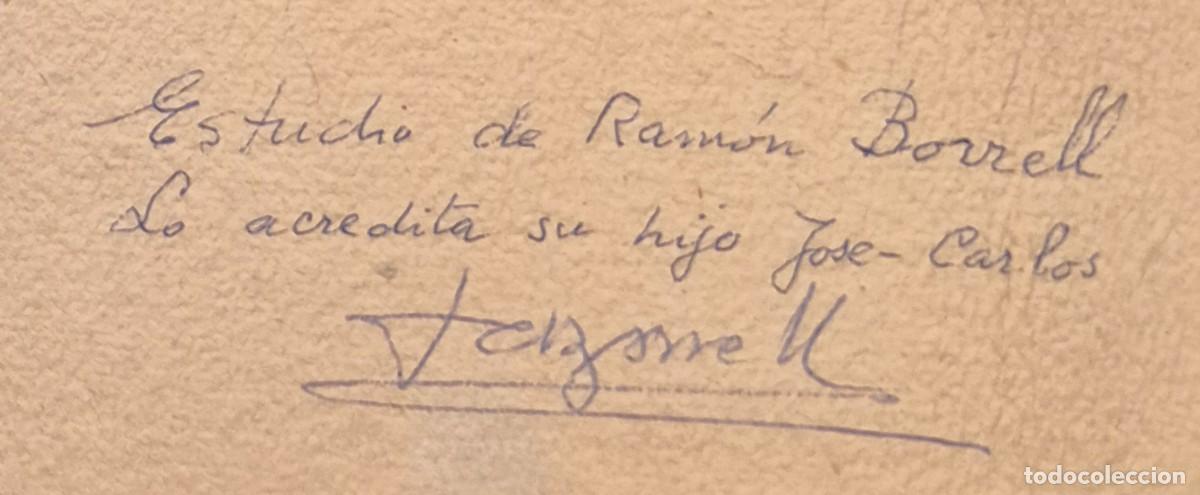 Estudio de Ramón Borrell
Lo acredita su hijo Jose-Carlos
todocoleccion